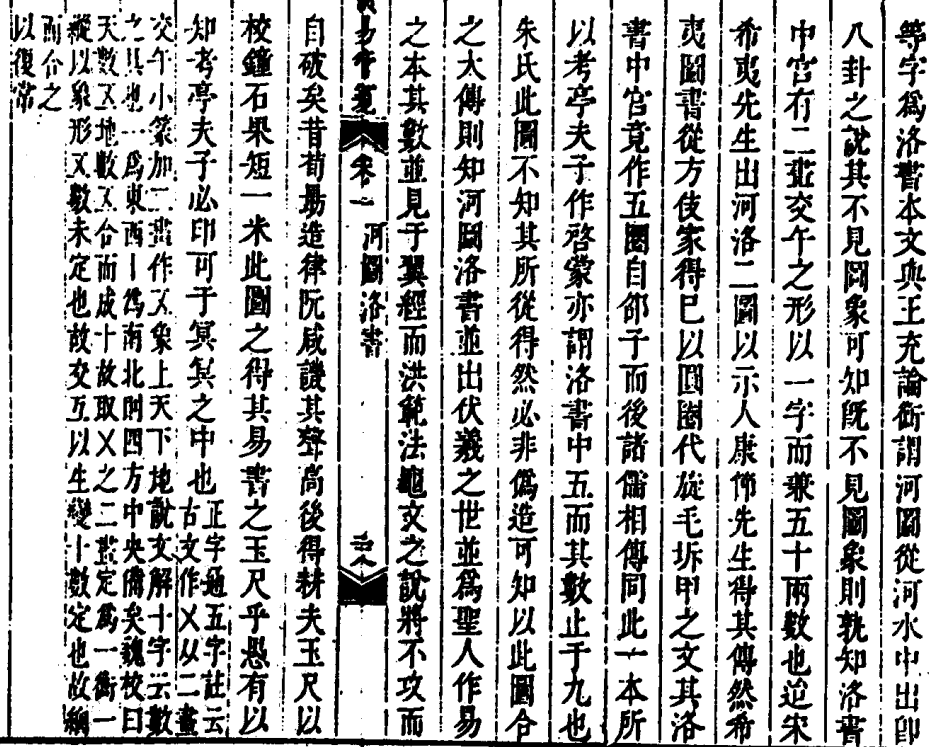 等字爲洛書本文與王充論衡謂河圖從河水中出卽
八卦之說其不見圖象可知旣不見圖象則孰知洛書
中宮有二畫交午之形以一字而兼五十兩數也迨宋
希夷先生出河洛二圖以示人康節先生得其傳然希
夷圖書從方伎家得巳以圓圈代旋毛坼甲之文其洛
書中宮竟作五圈自邵子而後諸儒相傳同此一本所
以考亭夫子作啓蒙亦謂洛書中五而其數止于九也
朱氏此圖不知其所從得然必非僞造可知以此圖合
之大傳則知河圖洛書並出伏羲之世並爲聖人作易
之本其數並見于翼經而洪範法龜文之說將不攻而
卷一 河圖洛書
自破矣昔荀勗造律阮咸譏其聲高後得耕夫玉尺以
校鐘石果短一米此圖之得其易書之玉尺乎愚有以
知考亭夫子必印可于冥冥之中也
正字通五字註云
古文作㐅从二畫
交午小篆加二畫作㐅象上天下地說文解十字云數
之具也一爲東西丨爲南北則四方中央備矣魏校曰
天數㐅地數㐅合而成十故取㐅之二畫定爲一衡一
縱以象形㐅數未定也故交互以生變十數定也故縱
而合之
以復常